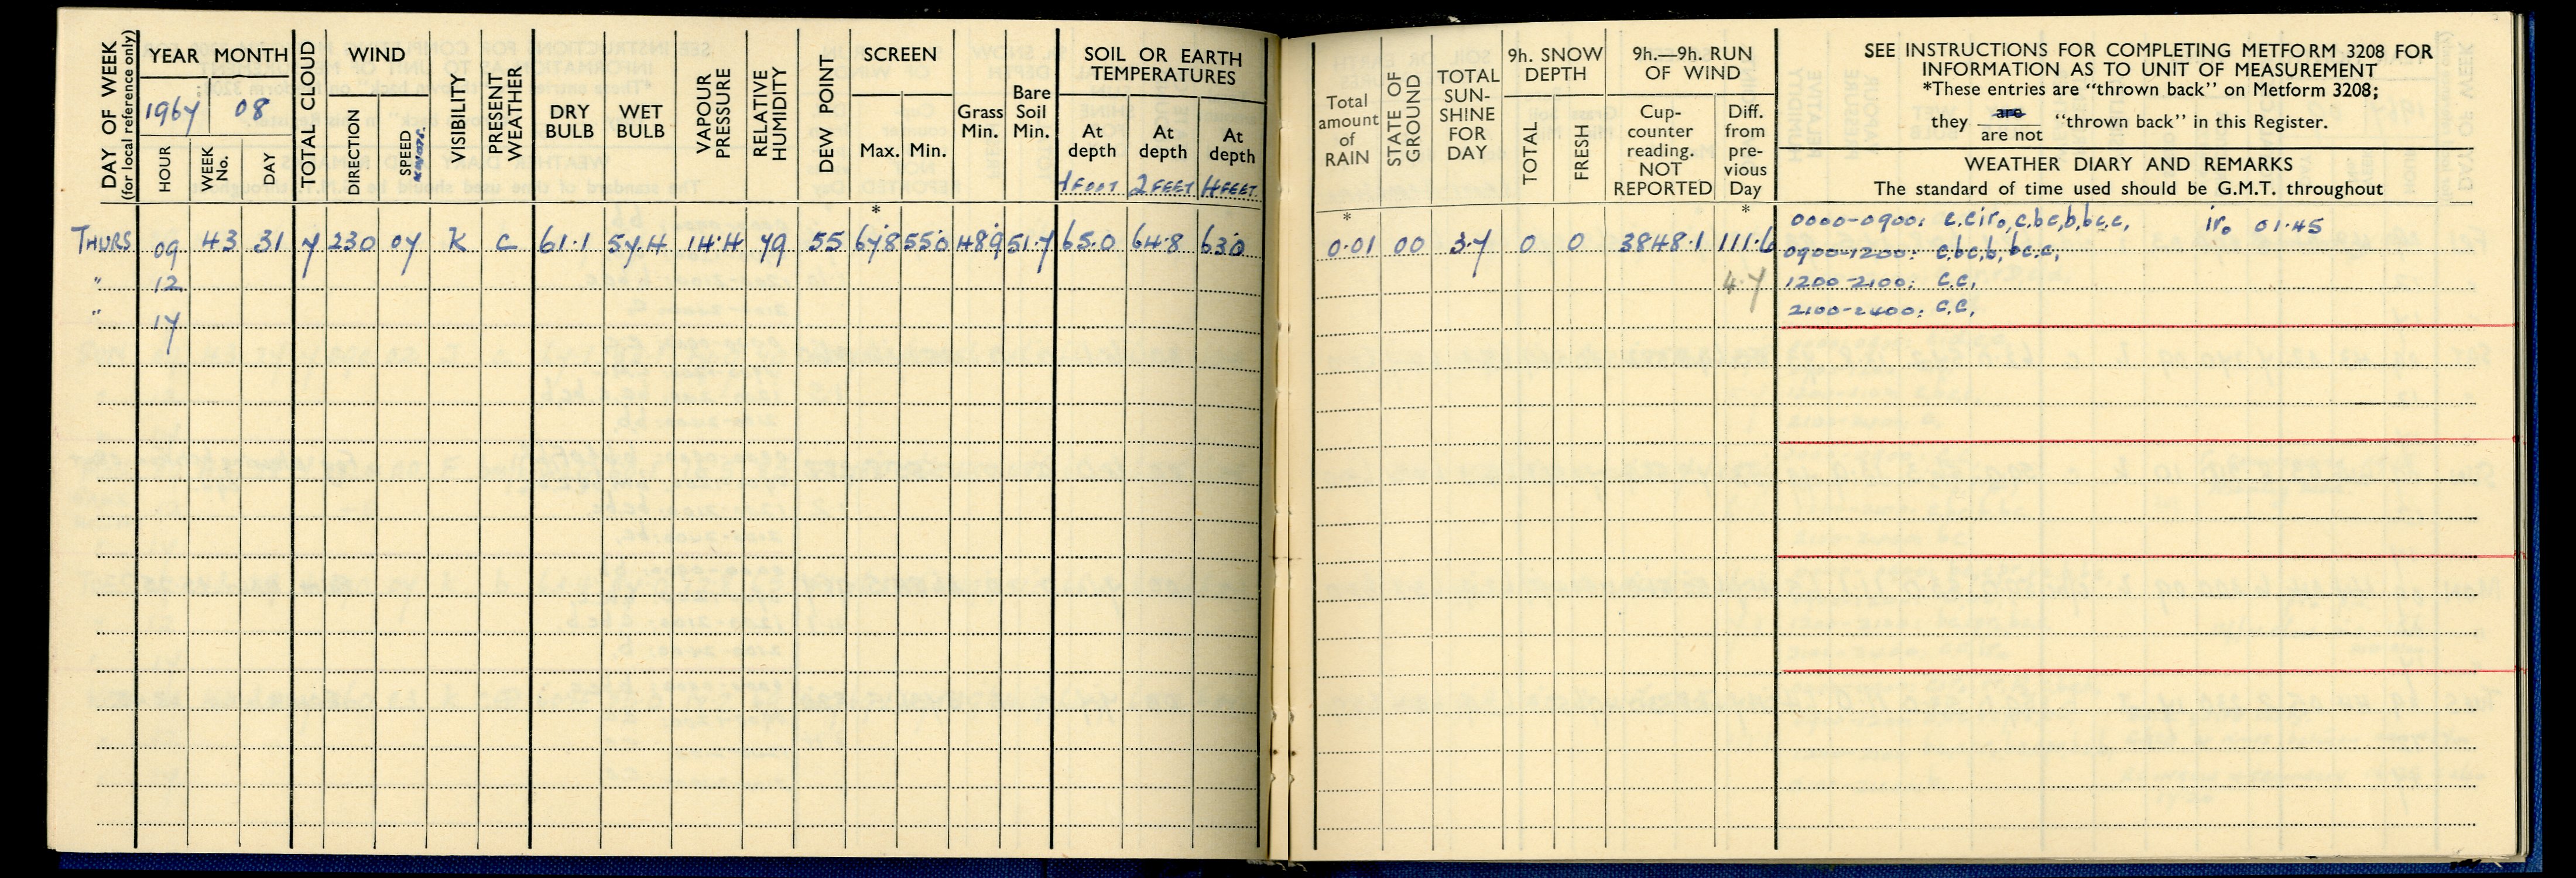 DAY OF WEEK
(for local reference only)
YEAR MONTH
1967 08
HOUR
WEEK No.
DAY
TOTAL CLOUD
WIND
DIRECTION
SPEED
KNOTS.
VISIBILITY
PRESENT WEATHER
DRY BULB
WET BULB
VAPOUR PRESSURE
RELATIVE HUMIDITY
DEW POINT
SCREEN
Max. Min.
Grass Min.
Bare Soil Min.
SOIL OR EARTH
TEMPERATURES
At depth 1 FOOT
At depth 2 FEET
At depth 4 FEET
Total amount of RAIN
STATE OF GROUND
TOTAL SUN-SHINE FOR DAY
9h. SNOW DEPTH
TOTAL
FRESH
9h.—9h. RUN OF WIND
Cup-counter reading. NOT REPORTED
Diff. from pre-vious Day
SEE INSTRUCTIONS FOR COMPLETING METFORM 3208 FOR
INFORMATION AS TO UNIT OF MEASUREMENT
*These entries are "thrown back" on Metform 3208;
they are / are not "thrown back" in this Register.
WEATHER DIARY AND REMARKS
The standard of time used should be G.M.T. throughout
* * *
THURS 09 43 31 7 230 07 K C 61.1 57.4 14.4 79 55 67.8 55.0 48.9 51.7 65.0 64.8 63.0 0.01 00 3.7 0 0 3848.1 111.6
" 12 4.7
" 17
0000-0900: c,cir₀,c,bc,b,bc,c, ir₀ 01.45
0900-1200: c,bc,b, bc,c,
1200-2100: c.c,
2100-2400: c.c,